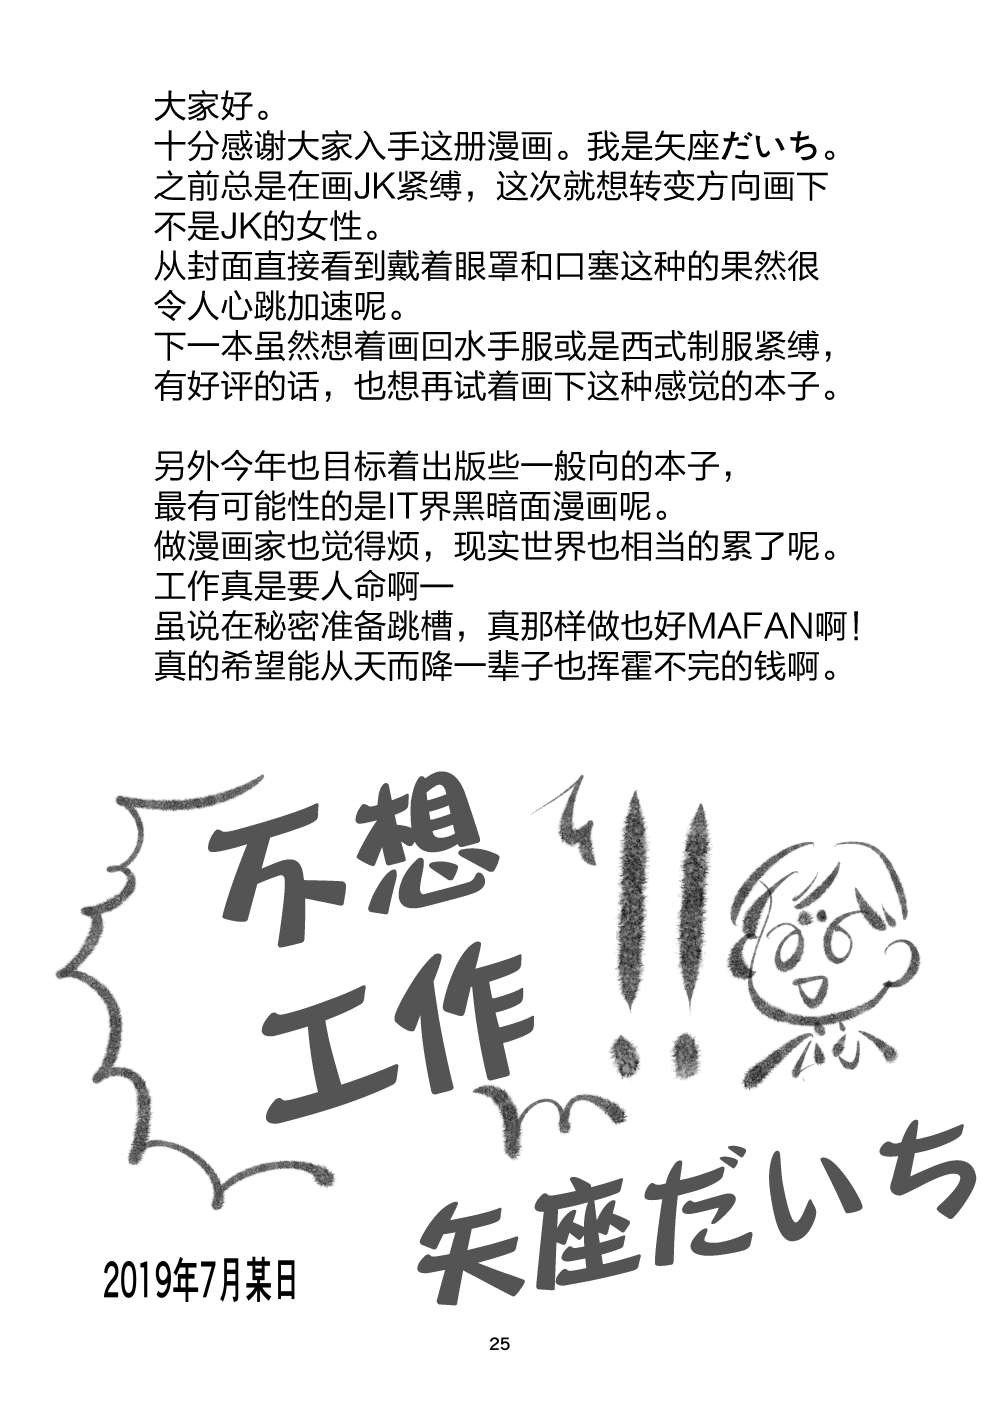 大家好。
十分感谢大家入手这册漫画。我是矢座だいち。
之前总是在画JK紧缚，这次就想转变方向画下
不是JK的女性。
从封面直接看到戴着眼罩和口塞这种的果然很
令人心跳加速呢。
下一本虽然想着画回水手服或是西式制服紧缚，
有好评的话，也想再试着画下这种感觉的本子。
另外今年也目标着出版些一般向的本子，
最有可能性的是IT界黑暗面漫画呢。
做漫画家也觉得烦，现实世界也相当的累了呢。
工作真是要人命啊一
虽说在秘密准备跳槽，真那样做也好MAFAN啊！
真的希望能从天而降一辈子也挥霍不完的钱啊。
不想
工作
!!
矢座だいち
2019年7月某日
25